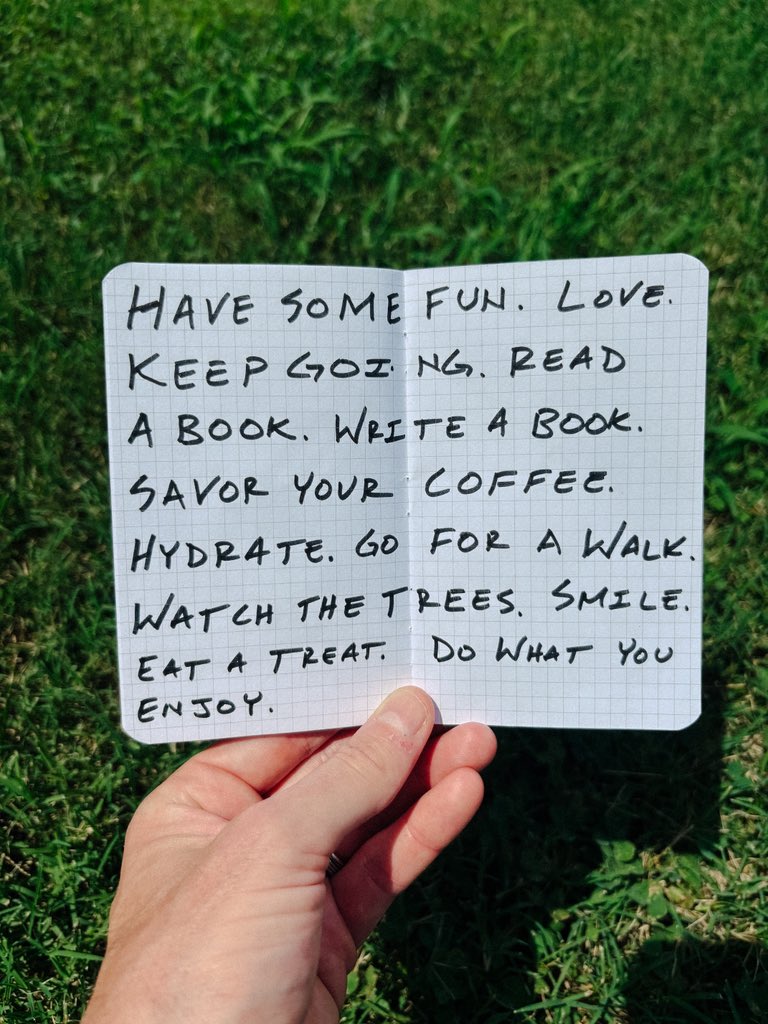 HAVE SOME FUN. LOVE.
KEEP GOING. READ
A BOOK. WRITE A BOOK.
SAVOR YOUR COFFEE.
HYDRATE. GO FOR A WALK.
WATCH THE TREES. SMILE.
EAT A TREAT. DO WHAT YOU
ENJOY.